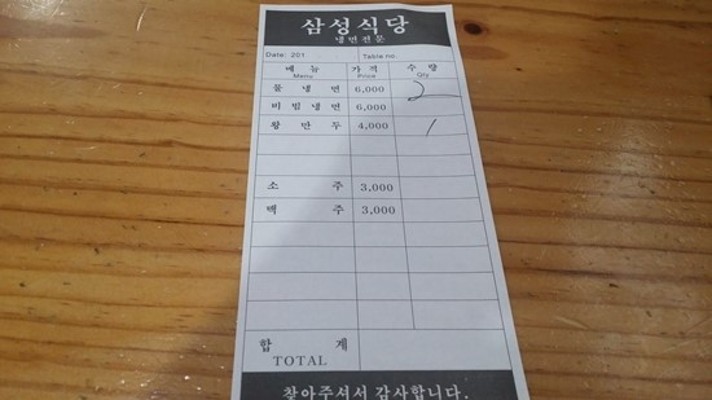 삼성식당
냉면전문
Date: 201 Table no.
메뉴 가격 수량
Menu Price Qty
물냉면 6,000 2
비빔냉면 6,000
왕만두 4,000 1
소주 3,000
맥주 3,000
합계
TOTAL
찾아주셔서 감사합니다.